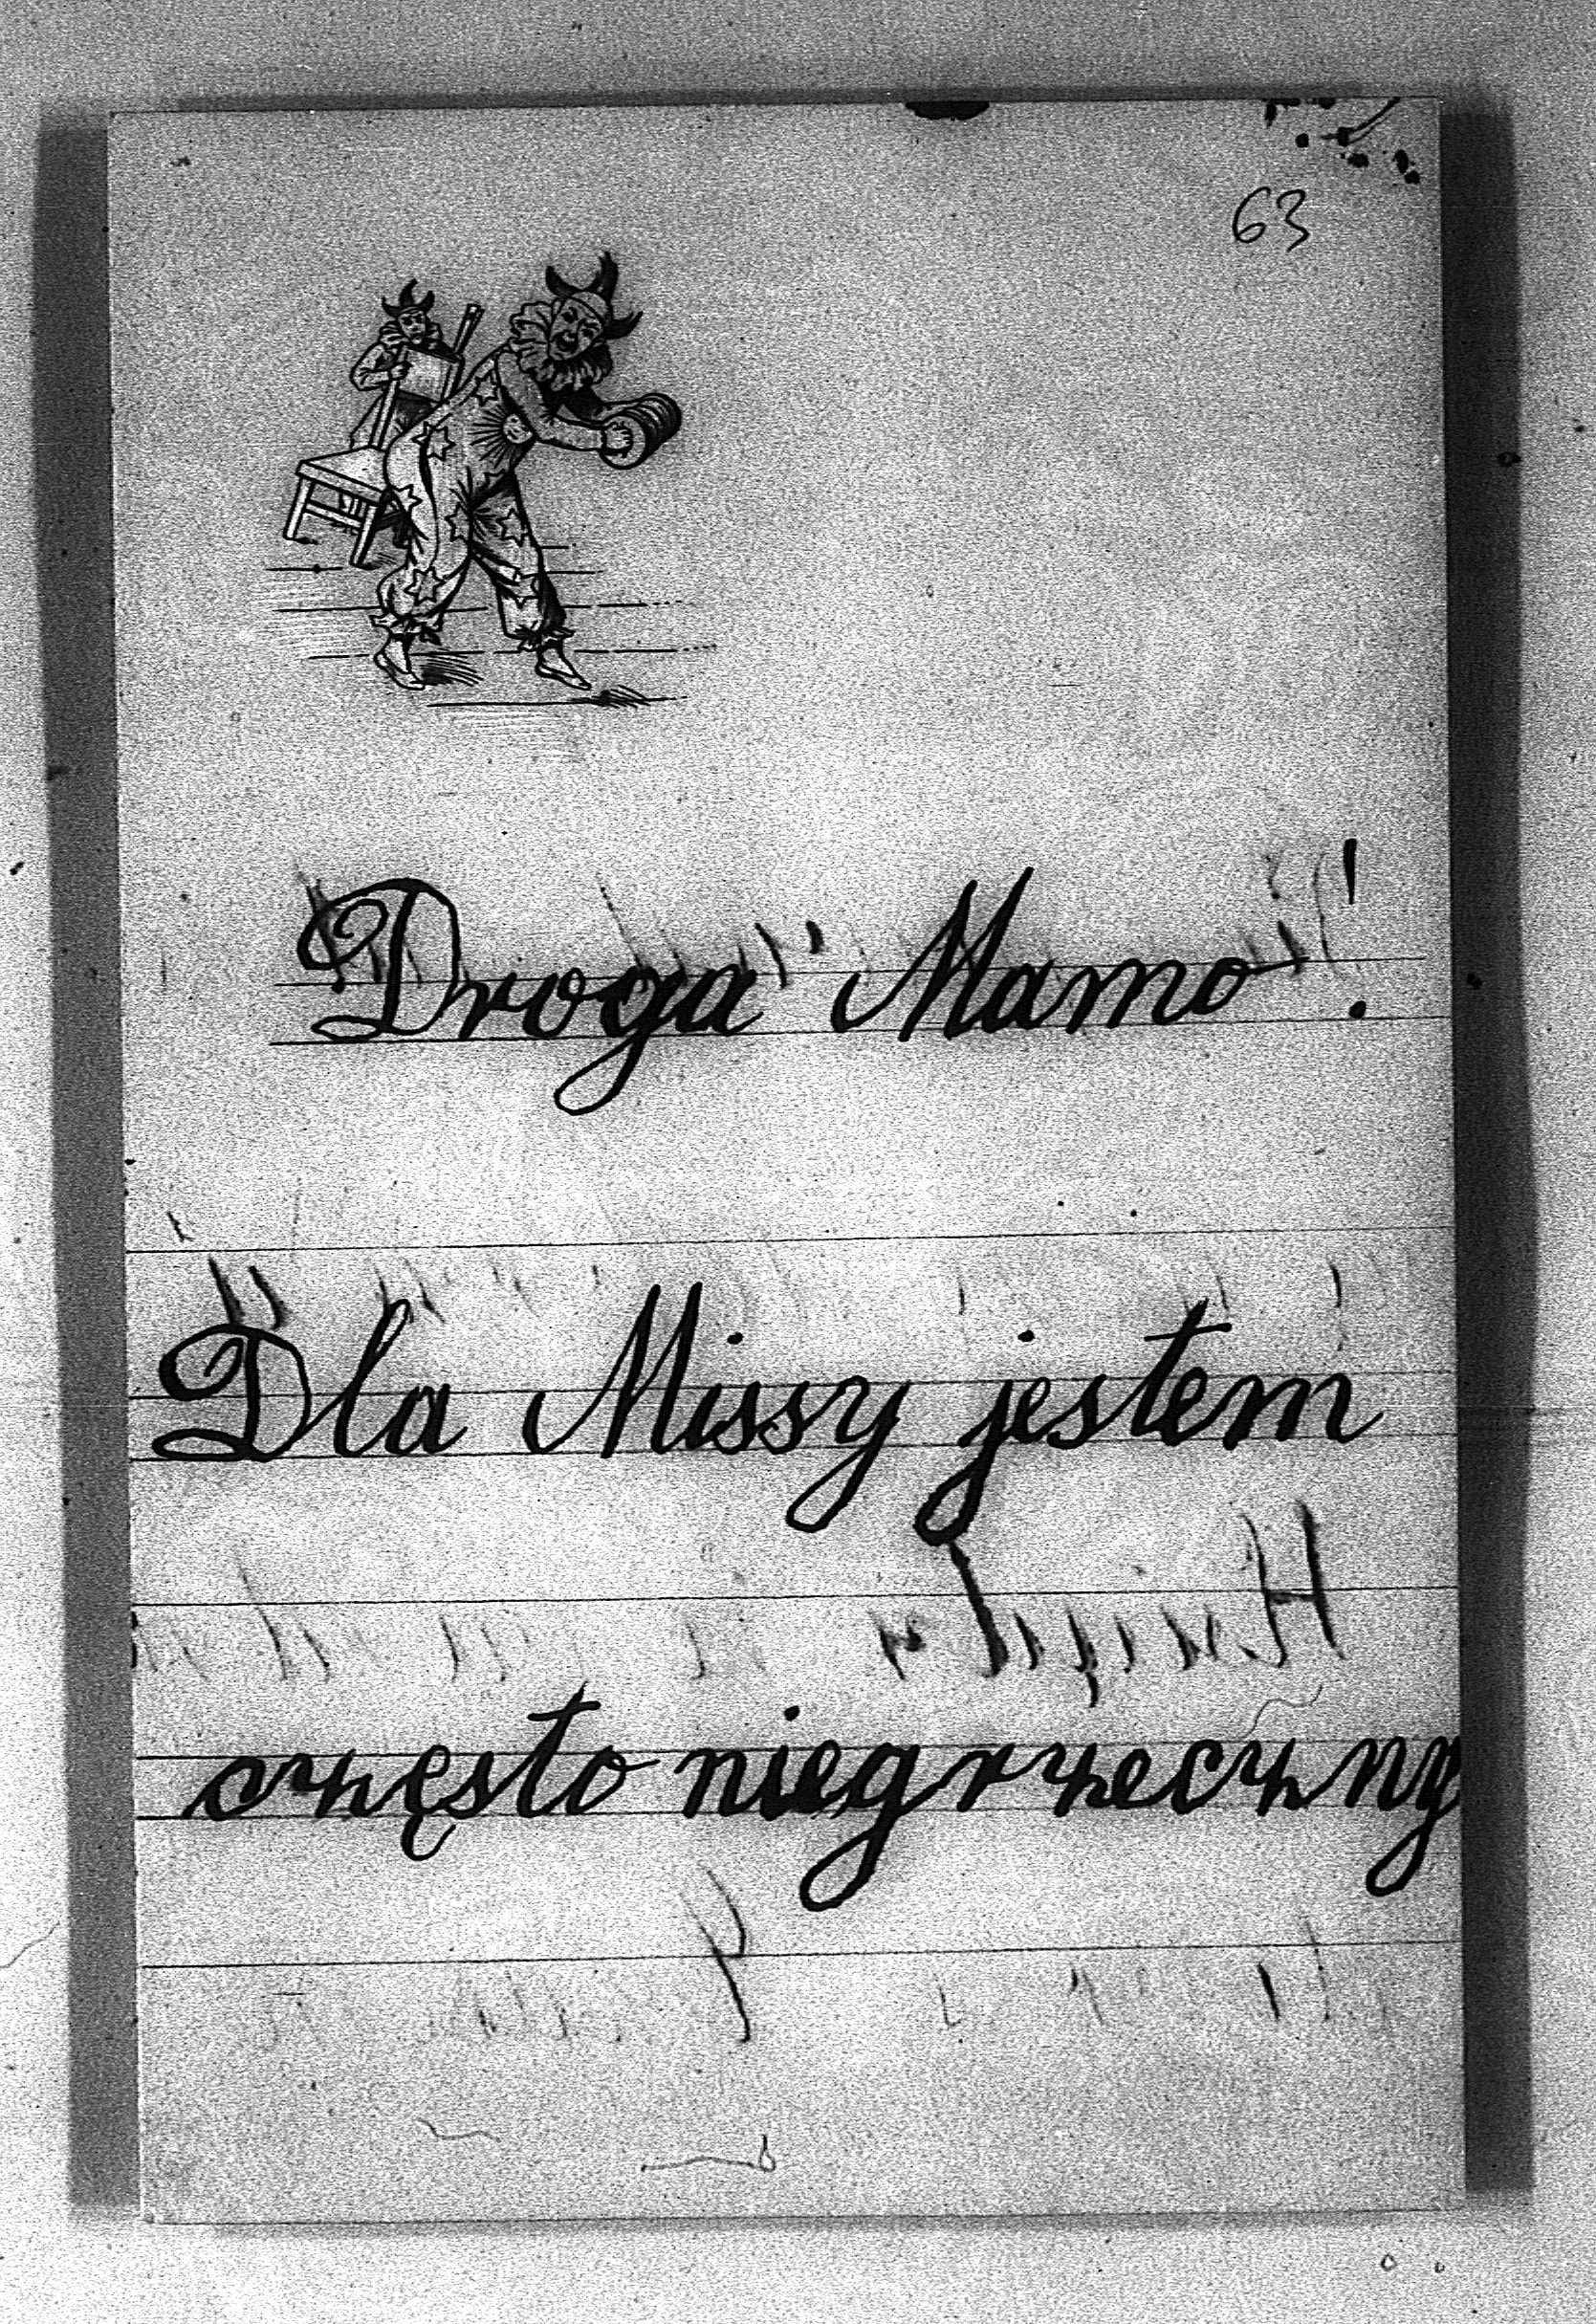 63
Droga Mamo!
Dla Missy jestem
często niegrzeczny